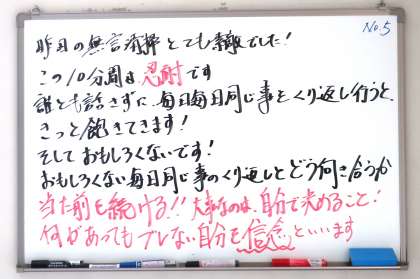 No.5
昨日の無言清掃とても素敵でした!
この10分間は忍耐です
誰とも話さずに、毎日毎日同じ事をくり返し行うと、
きっと飽きてきます!
そしておもしろくないです!
おもしろくない毎日同じ事のくり返しとどう向き合うか
当た前を続ける!!大事なのは、自分で決めること!
何があってもブレない自分を信念といいます